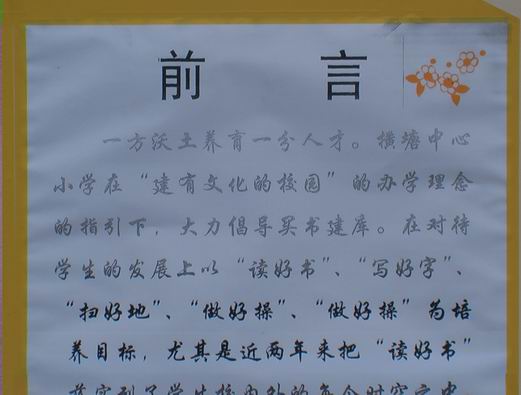 前言
一方沃土养育一分人才。横塘中心
小学在“建有文化的校园”的办学理念
的指引下，大力倡导买书建库。在对待
学生的发展上以“读好书”、“写好字”、
“扫好地”、“做好操”、“做好操”为培
养目标，尤其是近两年来把“读好书”
落实到了学生校内外的每个时空之中